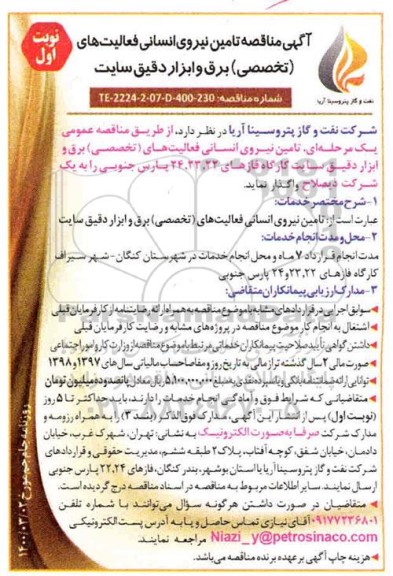 نوبت اول
آگهی مناقصه تامین نیروی انسانی فعالیت‌های
(تخصصی) برق و ابزار دقیق سایت
شماره مناقصه: TE-2224-2-07-D-400-230
نفت و گاز پتروسینا آریا
شرکت نفت و گاز پتروسینا آریا در نظر دارد، از طریق مناقصه عمومی
یک مرحله‌ای، تامین نیروی انسانی فعالیت‌های (تخصصی) برق و
ابزار دقیق سایت کارگاه فازهای ۲۲،۲۳،۲۴ پارس جنوبی را به یک
شرکت ذیصلاح واگذار نماید.
۱-شرح مختصر خدمات:
عبارت است از: تامین نیروی انسانی فعالیت‌های (تخصصی) برق و ابزار دقیق سایت
۲-محل و مدت انجام خدمات:
مدت انجام قرارداد ۷ ماه و محل انجام خدمات در شهرستان کنگان-شهر سیراف
کارگاه فازهای ۲۲،۲۳ و ۲۴ پارس جنوبی
۳-مدارک ارزیابی پیمانکاران متقاضی:
سوابق اجرایی در قراردادهای مشابه با موضوع مناقصه به همراه ارائه رضایتنامه از کارفرمایان قبلی
اشتغال به انجام کار موضوع مناقصه در پروژه‌های مشابه و رضایت کارفرمایان قبلی
داشتن گواهی تأیید صلاحیت پیمانکاران خدماتی مرتبط با موضوع مناقصه از وزارت کار و امور اجتماعی
صورت مالی ۲ سال گذشته تراز مالی به تاریخ روز و مفاصا حساب مالیاتی سال های ۱۳۹۷ و ۱۳۹۸
توانایی ارائه ضمانتنامه بانکی و یا سپرده نقدی به مبلغ ۵،۱۰۰،۰۰۰،۰۰۰ ریال معادل پانصد و ده میلیون تومان
متقاضیانی که شرایط فوق و آمادگی انجام خدمات را دارند، باید حداکثر تا ۵ روز
(نوبت اول) پس از انتشار این آگهی، مدارک فوق الذکر (بند ۳) را به همراه رزومه و
مدارک شرکت صرفا به صورت الکترونیک به نشانی: تهران، شهرک غرب، خیابان
دادمان، خیابان شفق، کوچه آفتاب، پلاک ۲ طبقه ششم، مدیریت حقوقی و قراردادهای
شرکت نفت و گاز پتروسینا آریا یا استان بوشهر، بندر کنگان، فازهای ۲۲،۲۴ پارس جنوبی
ارسال نمایند. سایر اطلاعات مربوط به مناقصه در اسناد مناقصه درج گردیده است.
متقاضیان در صورت داشتن هرگونه سؤال می‌توانند با شماره تلفن
۰۹۱۷۷۲۳۶۸۰۱ آقای نیازی تماس حاصل و یا به آدرس پست الکترونیکی
Niazi_y@petrosinaco.com مراجعه نمایند.
هزینه چاپ آگهی بر عهده برنده مناقصه می‌باشد.
روزنامه جام جم مورخ ۱۴۰۰/۰۳/۰۲